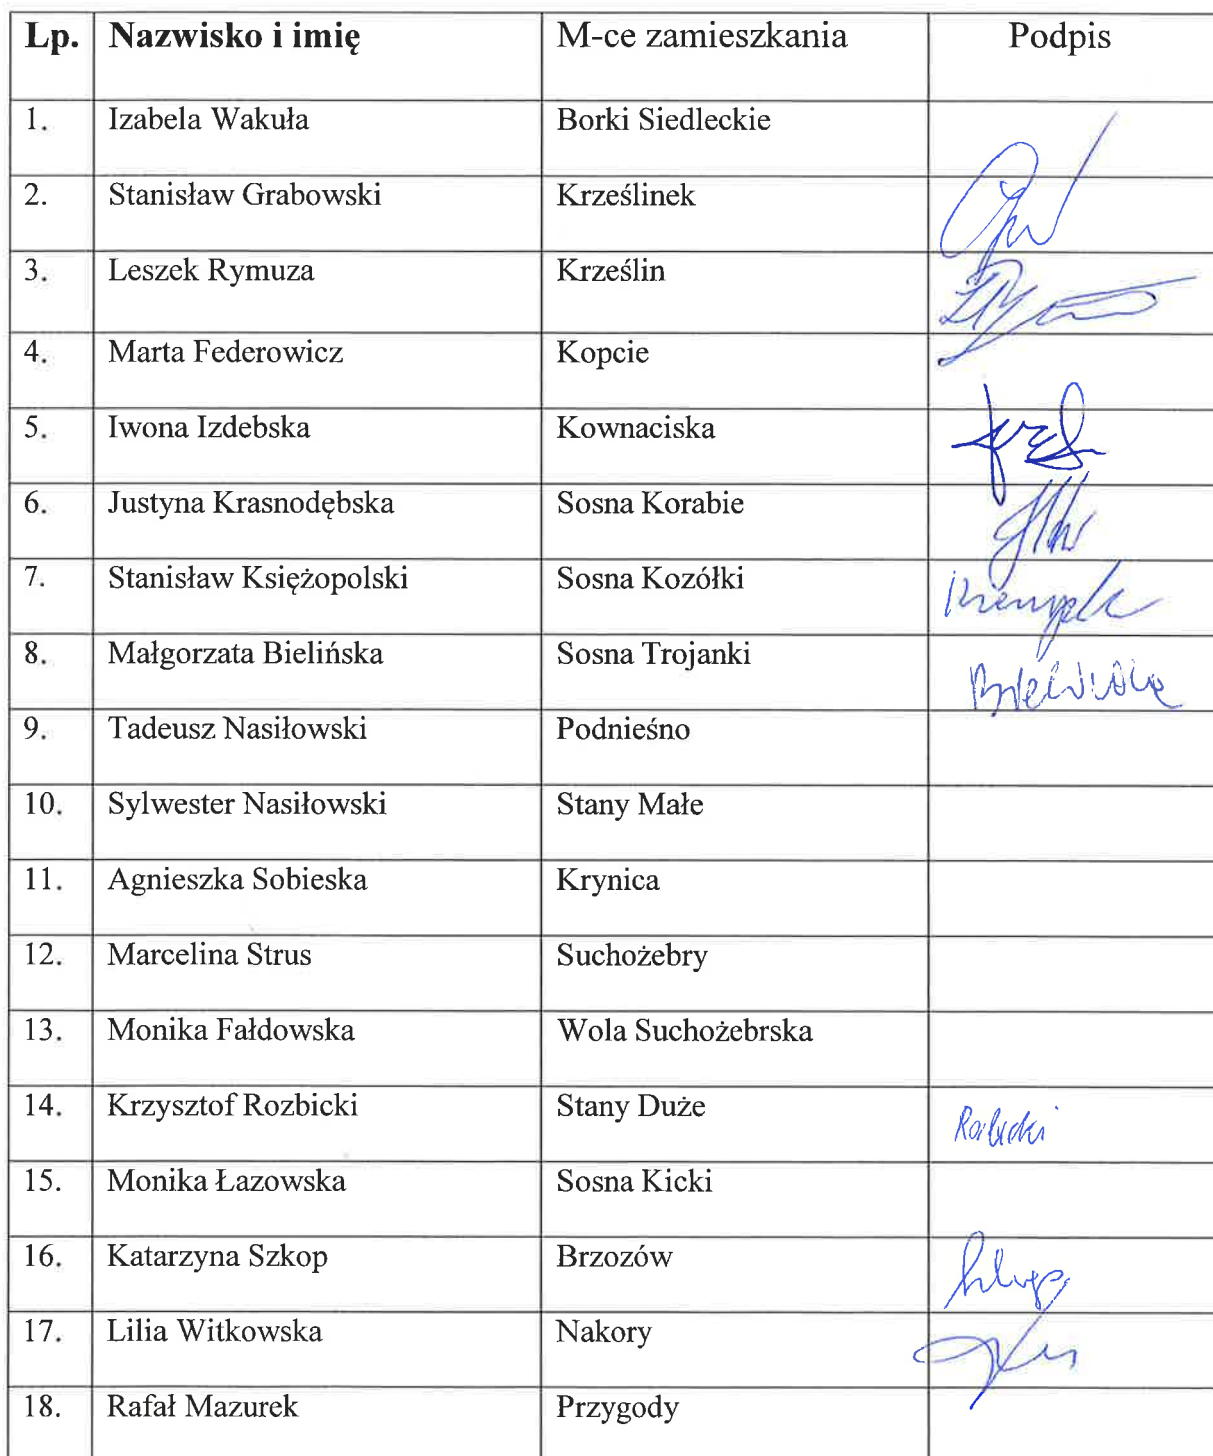 Lp. Nazwisko i imię M-ce zamieszkania Podpis
1. Izabela Wakuła Borki Siedleckie
2. Stanisław Grabowski Krześlinek
3. Leszek Rymuza Krześlin
4. Marta Federowicz Kopcie
5. Iwona Izdebska Kownaciska
6. Justyna Krasnodębska Sosna Korabie
7. Stanisław Księżopolski Sosna Kozółki
8. Małgorzata Bielińska Sosna Trojanki
9. Tadeusz Nasiłowski Podnieśno
10. Sylwester Nasiłowski Stany Małe
11. Agnieszka Sobieska Krynica
12. Marcelina Strus Suchożebry
13. Monika Fałdowska Wola Suchożebrska
14. Krzysztof Rozbicki Stany Duże
15. Monika Łazowska Sosna Kicki
16. Katarzyna Szkop Brzozów
17. Lilia Witkowska Nakory
18. Rafał Mazurek Przygody